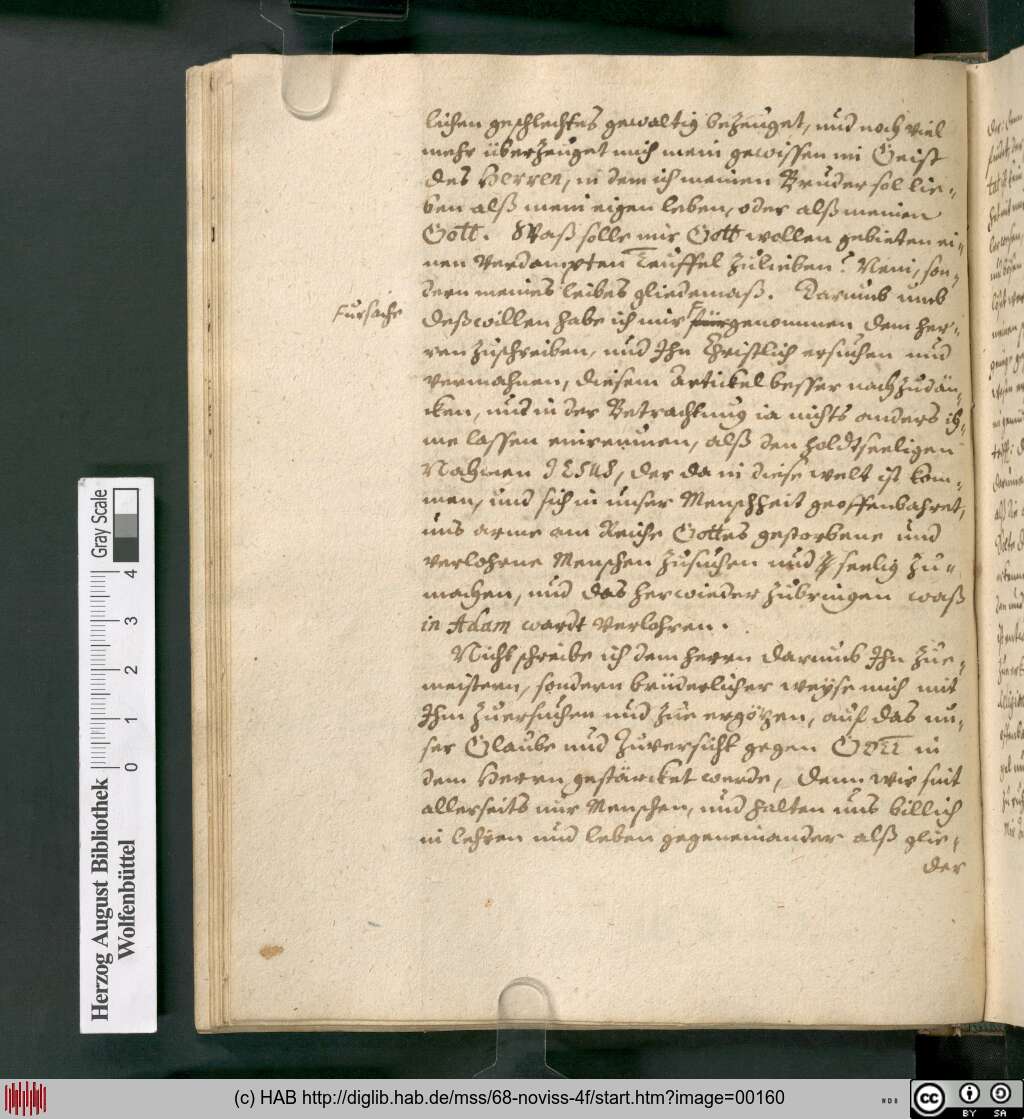 lichen geschlechtes gewaltig bezeuget, und noch viel
mehr überzeuget mich mein gewissen im Geist
des Herren, in dem ich meinen Bruder sol lie-
ben alß mein eigen leben, oder alß meinen
Gott. Waß solle mir Gott wollen gebieten ei-
nen verdampten Teuffel zulieben? Nein, son-
dern meines leibes gliedemaß. Darumb umb
Fursache
deßwillen habe ich mir für genommen dem Her-
ren zuschreiben, und Ihn Christlich ersuchen und
vermahnen, diesem Artickel besser nachzudän-
cken, und in der Betrachtung ia nichts anders ih-
me lassen einreumen, alß den holdtseeligen
Nahmen IESUS, der da in diese welt ist kom-
men, und sich in unser Menschheit geoffenbahret,
uns arme am Reiche Gottes gestorbene und
verlohrne Menschen zusuchen und seelig zu-
machen, und das herwieder zubringen waß
in Adam wardt verlohren.
Nicht schreibe ich dem Herrn darumb Ihn zue-
meistern, sondern brüderlicher weyse mich mit
Ihm zuersuchen und zue ergötzen, auf das un-
ser Glaube und Zuversicht gegen Gott in
dem Herrn gestärcket werde, Denn wir sint
allerseits nur Menschen, und halten uns billich
in lehren und leben gegeneinander alß glie-
der
Herzog August Bibliothek
Wolfenbüttel
0 1 2 3 4
Gray Scale
(c) HAB http://diglib.hab.de/mss/68-noviss-4f/start.htm?image=00160
cc BY SA